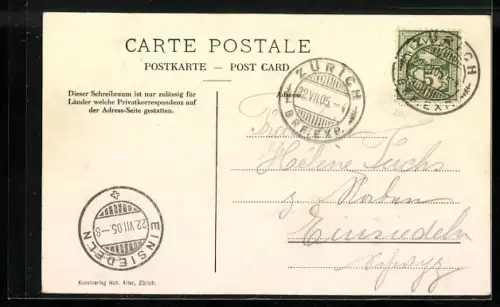 CARTE POSTALE
POSTKARTE — POST CARD
Dieser Schreibraum ist nur zulässig für
Länder welche Privatkorrespondenz auf
der Adress-Seite gestatten.
Adresse
ZÜRICH
22.VII.05.-4
BRF.EXP.
ZÜRICH
BRF.EXP.
5
Hélène Fuchs
z.
Einsiedeln
Schwyz
EINSIEDELN
22.VII.05-8
Kunstverlag Hch. Alter, Zürich.